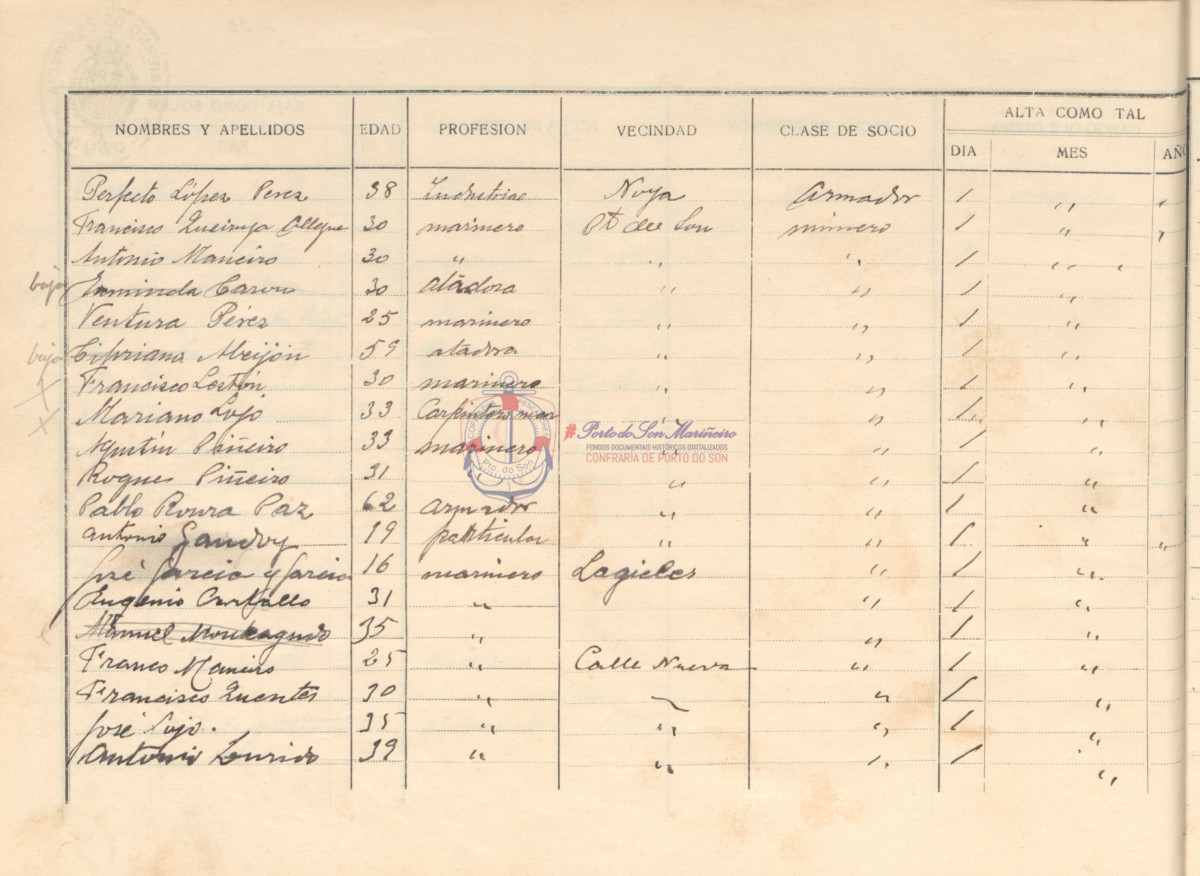 ALTA COMO TAL
NOMBRES Y APELLIDOS EDAD PROFESION VECINDAD CLASE DE SOCIO DIA MES AÑO
Perfecto López Perez 38 Industrial Noya Armador 1 " "
Francisco Queiruga Ollegue 30 marinero Pto de Son 1 " "
Antonio Maneiro 30 " " " 1 " "
baja 30 atadora " " 1 "
Ventura Pérez 25 marinero " " 1 "
baja Cipriana Abeijón 59 atadora " " 1 "
Francisco Lestón 30 marinero " " 1 "
X Mariano Lojo 33 Carpintero " " 1 "
Agustín Piñeiro 33 marinero " " 1 "
Roque Piñeiro 31 " " " 1 "
Pablo Roura Paz 62 armador " " 1 "
Antonio Gandoy 19 particular " " 1 " "
José García y García 16 marinero " 1 "
Eugenio Carballo 31 " " 1 "
Manuel Monteagudo 35 " " 1 "
Franco Maneiro 25 " Calle Nueva " 1 "
Francisco Fuentes 30 " " 1 "
José Lojo. 35 " " " 1 "
Antonio Lourido 39 " " " 1 "
#Porto do Son Mariñeiro
FONDOS DOCUMENTAIS HISTÓRICOS DIGITALIZADOS
CONFRARÍA DE PORTO DO SON
Pto. do Son